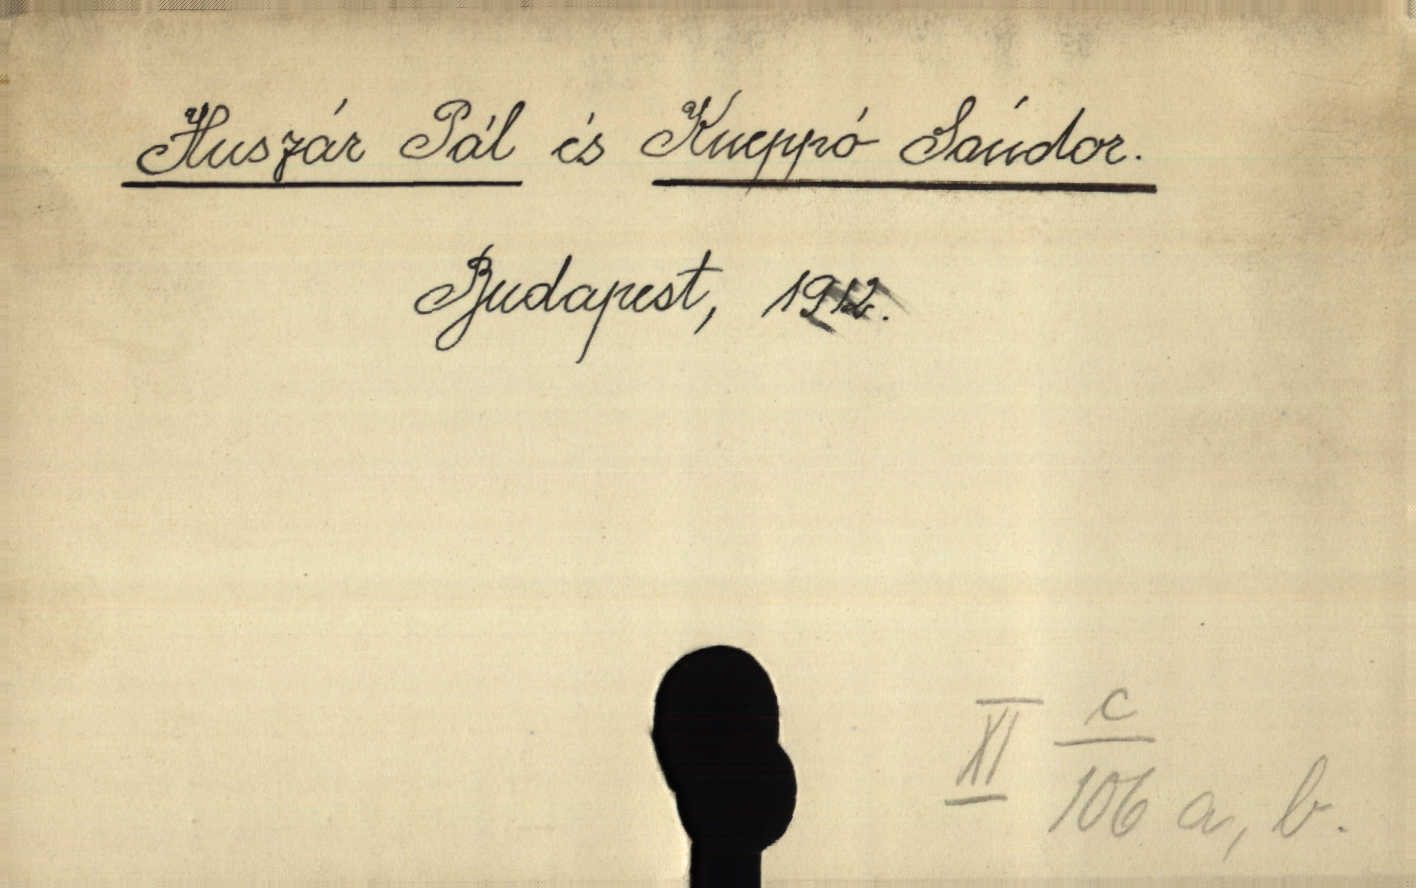 Huszár Pál és Kneppó Sándor.
Budapest, 1912.
XI c/106 a, b.